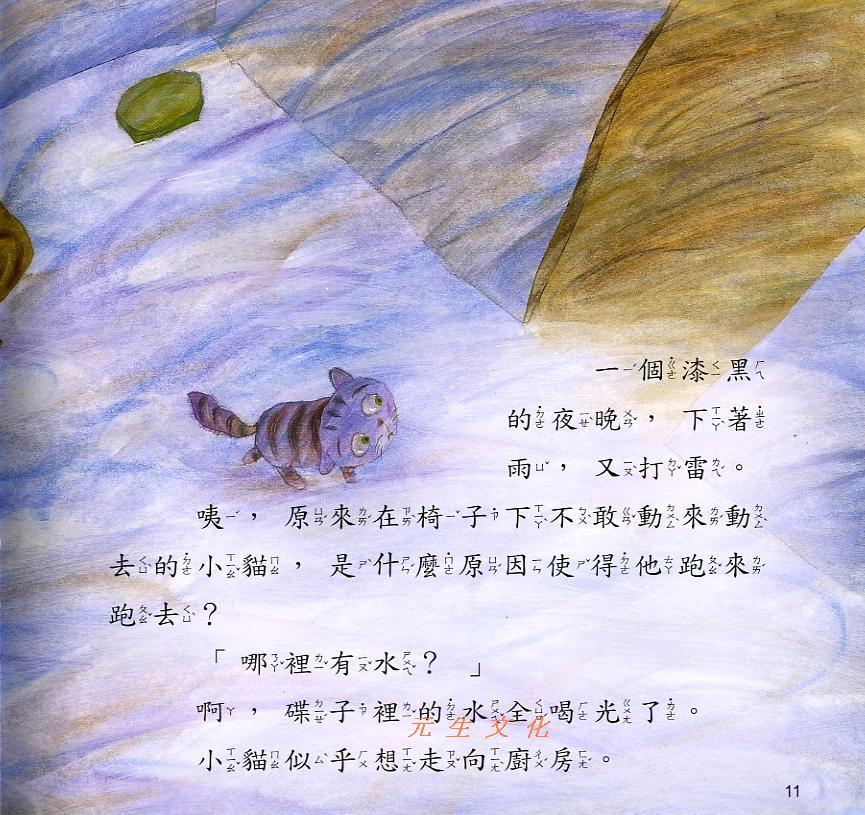 一個漆黑
的夜晚，下著
雨，又打雷。
咦，原來在椅子下不敢動來動
去的小貓，是什麼原因使得他跑來
跑去？
「哪裡有水？」
啊，碟子裡的水全喝光了。
元生文化
小貓似乎想走向廚房。
11